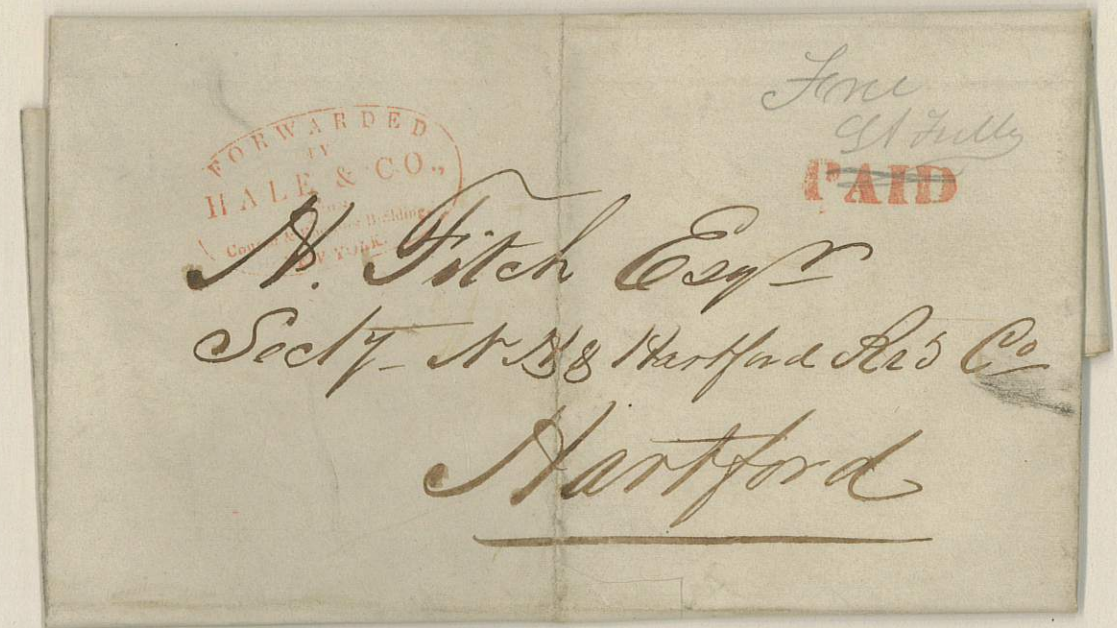 FORWARDED
BY
HALE & CO.,
Buildings
NEW YORK.
Free
PAID
N. Fitch Esqr
Secty N H & Hartford Rrd Co
Hartford